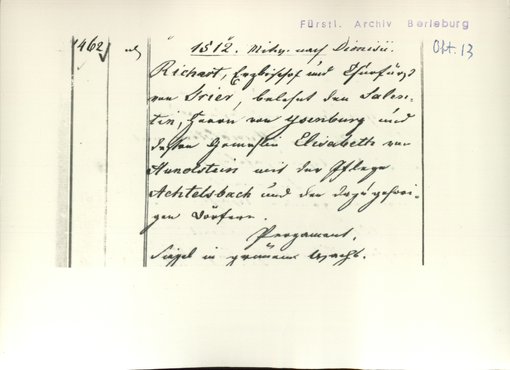 Fürstl. Archiv Berleburg
1462
1512. Mittw. nach Dionisii.
Okt. 13
Richart, Erzbischof und Churfürst
von Trier, belehnt den Salen-
tin, Herrn von Ysenburg und
dessen Gemahlin Elisabeth von
Hunolstein mit der Pflege
Achtelsbach und den dazu gehöri-
gen Dörfern.
Pergament.
Siegel in grünem Wachs.